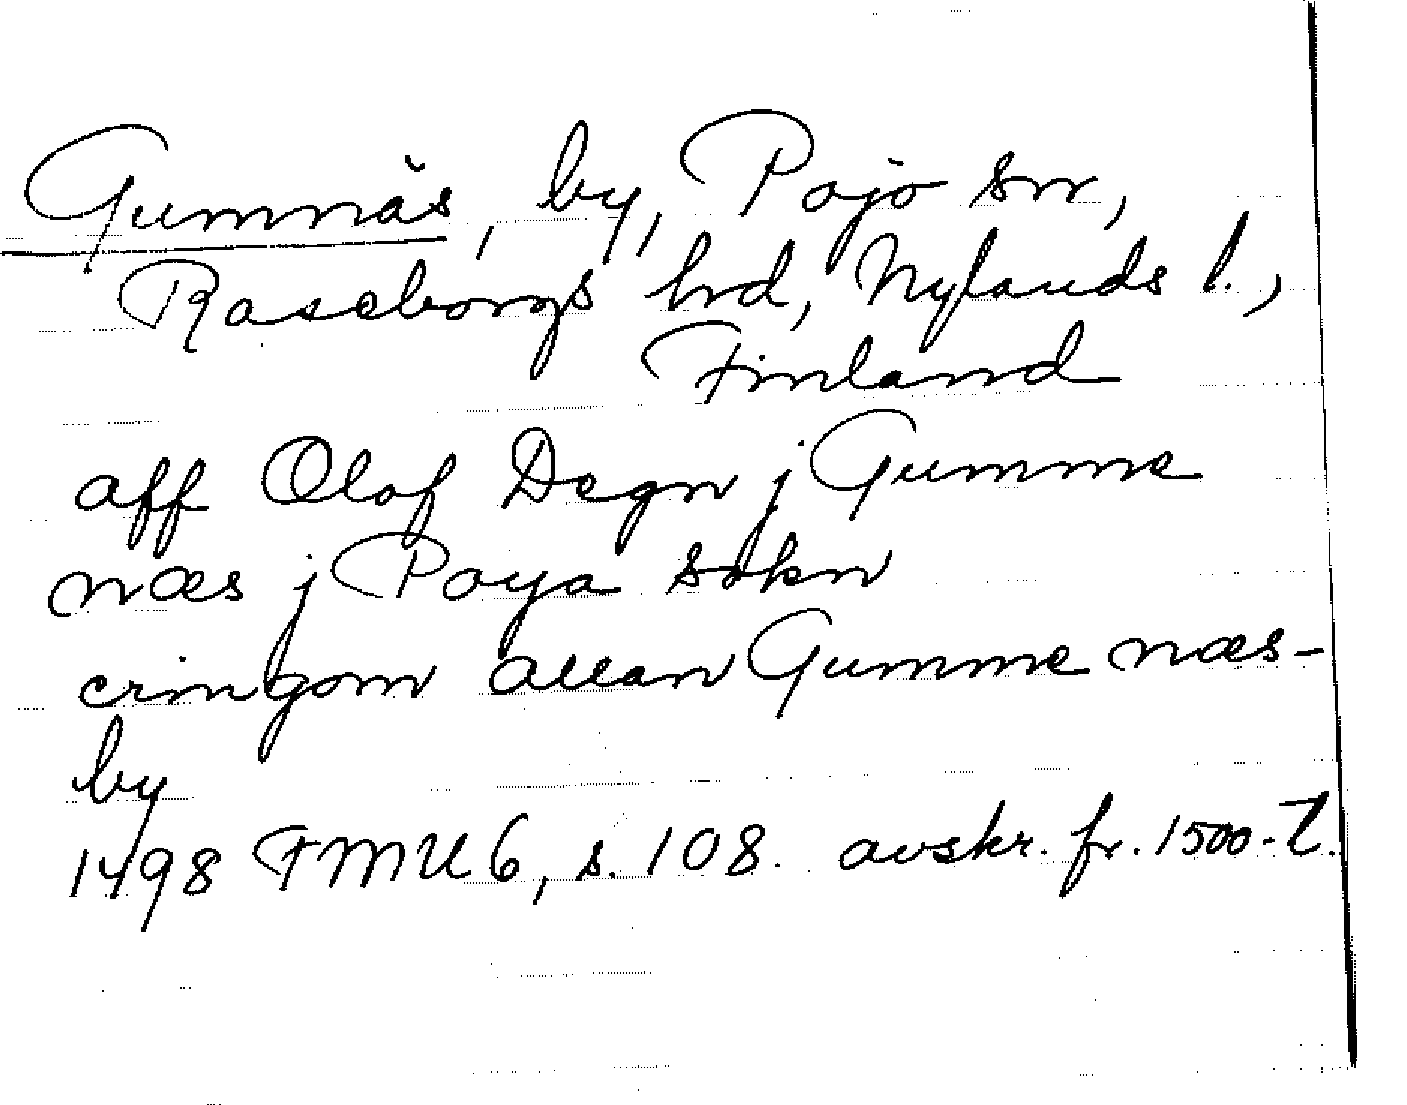 Gumnäs, by, Pojo sn,
Raseborgs hrd, Nylands l.,
Finland
aff Olof Degn j Gumme
næs j Poya sokn
eringom allan Gumme næs-
by
1498 FMU 6, s. 108. avskr. fr. 1500-t.